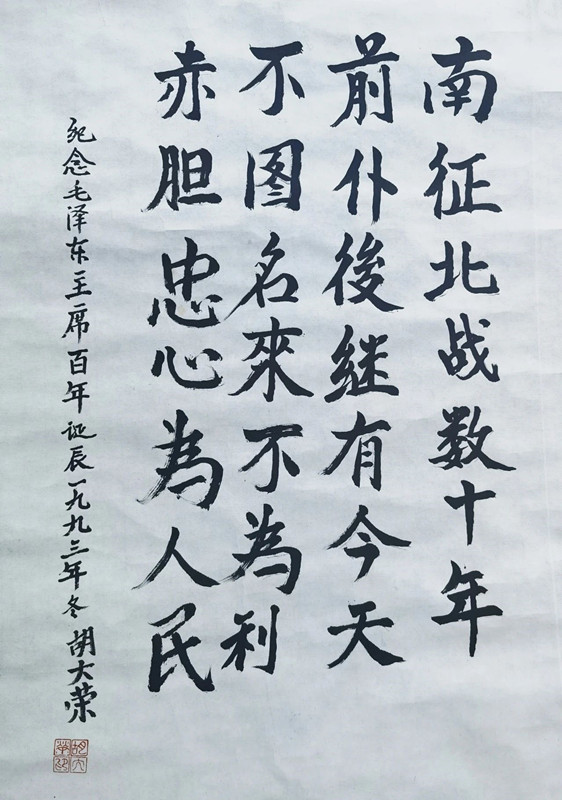 南征北战数十年
前仆後继有今天
不图名來不為利
赤胆忠心為人民
纪念毛泽东主席百年诞辰一九九三年冬 胡大荣